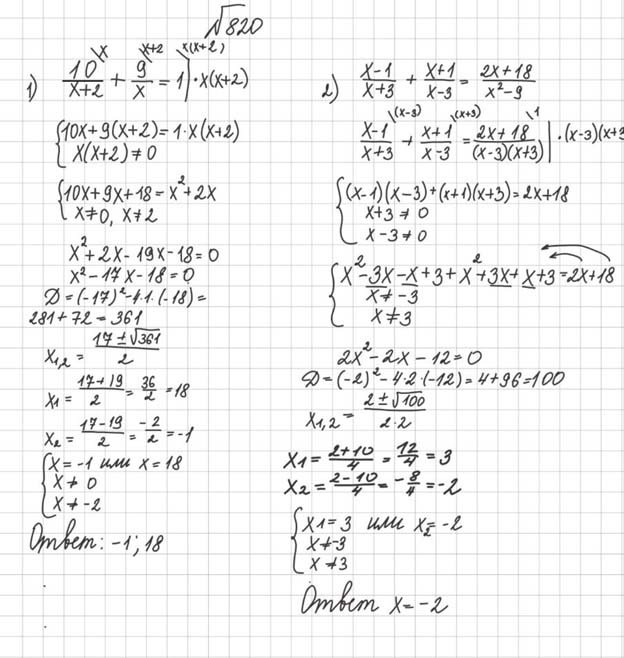 №820
1) 10/(x+2) \x + 9/x \x+2 = 1 \x(x+2) | · x(x+2)
{10x+9(x+2)=1·x(x+2)
x(x+2)≠0
{10x+9x+18=x²+2x
x≠0, x≠2
x²+2x-19x-18=0
x²-17x-18=0
D=(-17)²-4·1·(-18)=
281+72=361
x1,2=(17±√361)/2
x1=(17+19)/2=36/2=18
x2=(17-19)/2=-2/2=-1
{x=-1 или x=18
x≠0
x≠-2
Ответ: -1; 18
2) (x-1)/(x+3) + (x+1)/(x-3) = (2x+18)/(x²-9)
(x-1)/(x+3) \(x-3) + (x+1)/(x-3) \(x+3) = (2x+18)/((x-3)(x+3)) \1 | · (x-3)(x+3
{(x-1)(x-3)+(x+1)(x+3)=2x+18
x+3≠0
x-3≠0
{x²-3x-x+3+x²+3x+x+3=2x+18
x≠-3
x≠3
2x²-2x-12=0
D=(-2)²-4·2·(-12)=4+96=100
x1,2=(2±√100)/(2·2)
x1=(2+10)/4=12/4=3
x2=(2-10)/4=-8/4=-2
{x1=3 или x2=-2
x≠-3
x≠3
Ответ x=-2